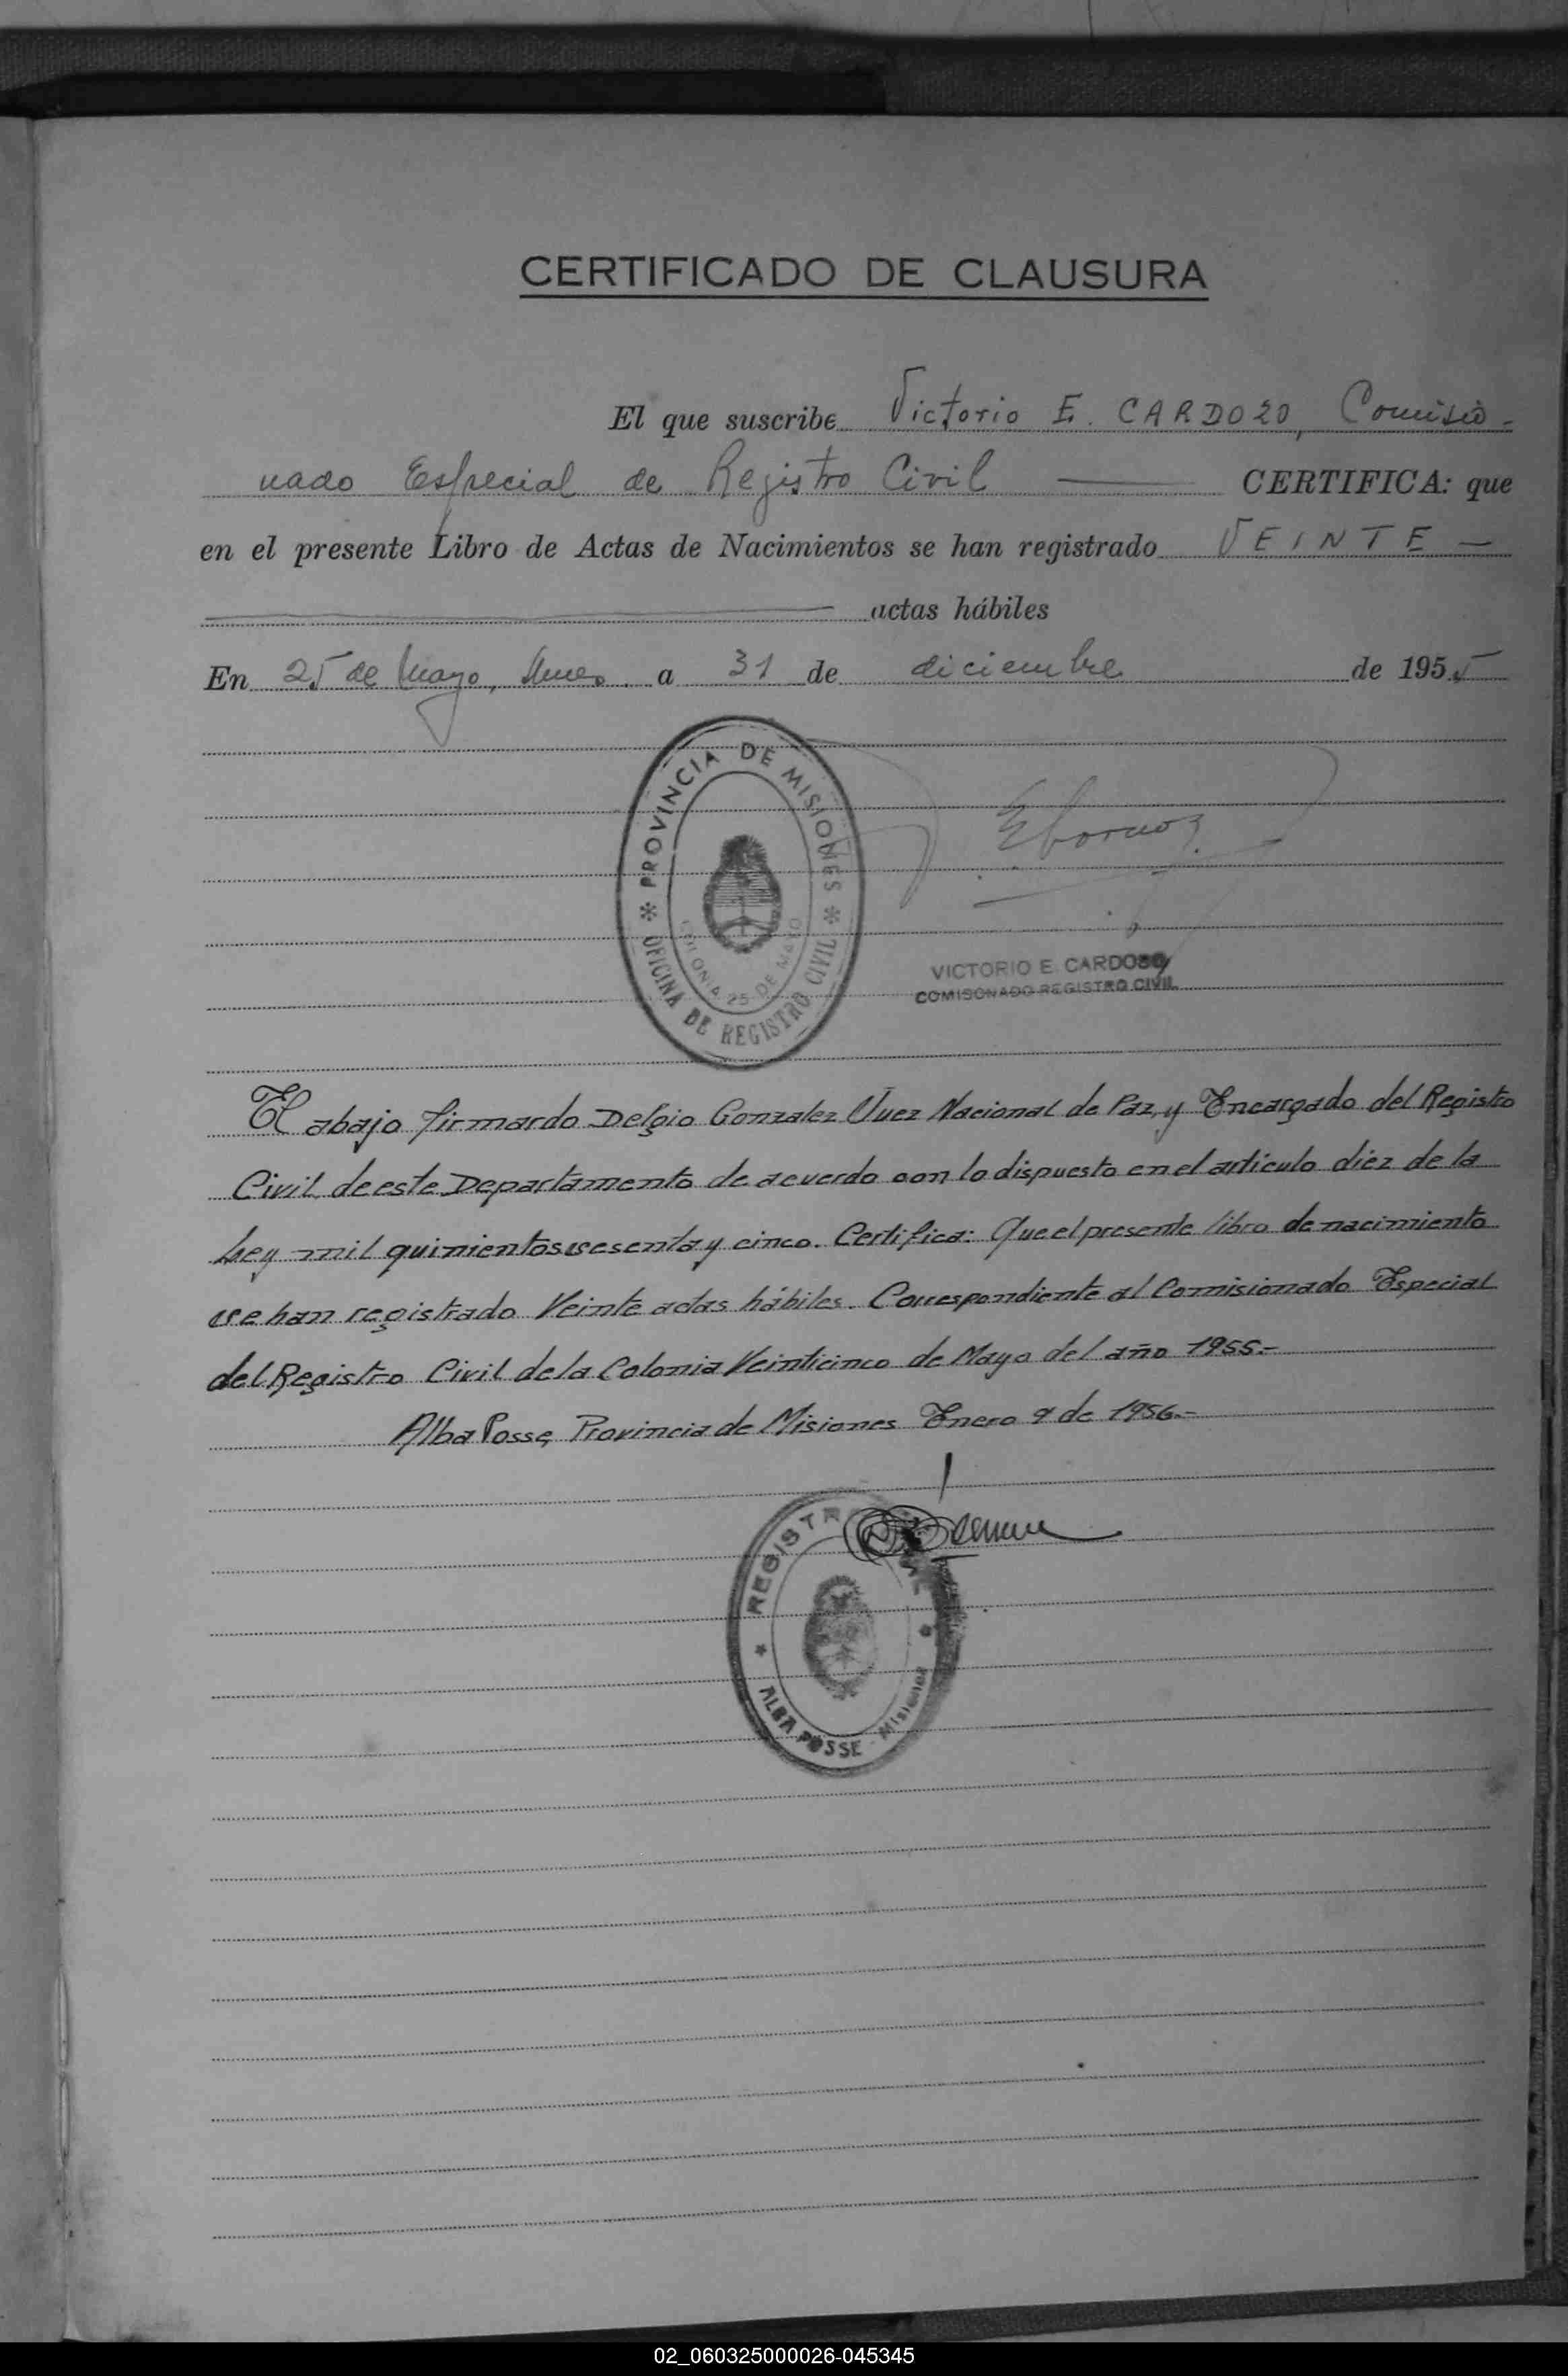 CERTIFICADO DE CLAUSURA
El que suscribe Victorio E. CARDOZO, Comisio-
nado Especial de Registro Civil CERTIFICA: que
en el presente Libro de Actas de Nacimientos se han registrado VEINTE —
actas hábiles
En 25 de Mayo, Mnes. a 31 de diciembre de 1955
PROVINCIA DE MISIONES
COLONIA 25 DE MAYO
OFICINA DE REGISTRO CIVIL
VICTORIO E. CARDOZO
COMISONADO REGISTRO CIVIL
El abajo firmardo Delgio Gonzalez Juez Nacional de Paz, y Encargado del Registro
Civil de este Departamento de acuerdo con lo dispuesto en el articulo diez de la
Ley mil quinientos sesenta y cinco. Certifica: Que el presente libro de nacimiento
se han registrado Veinte actas hábiles. Correspondiente al Comisionado Especial
del Registro Civil de la Colonia Veinticinco de Mayo del año 1955.-
Alba Posse, Provincia de Misiones Enero 9 de 1956.-
ALBA POSSE - Misiones
02_060325000026-045345